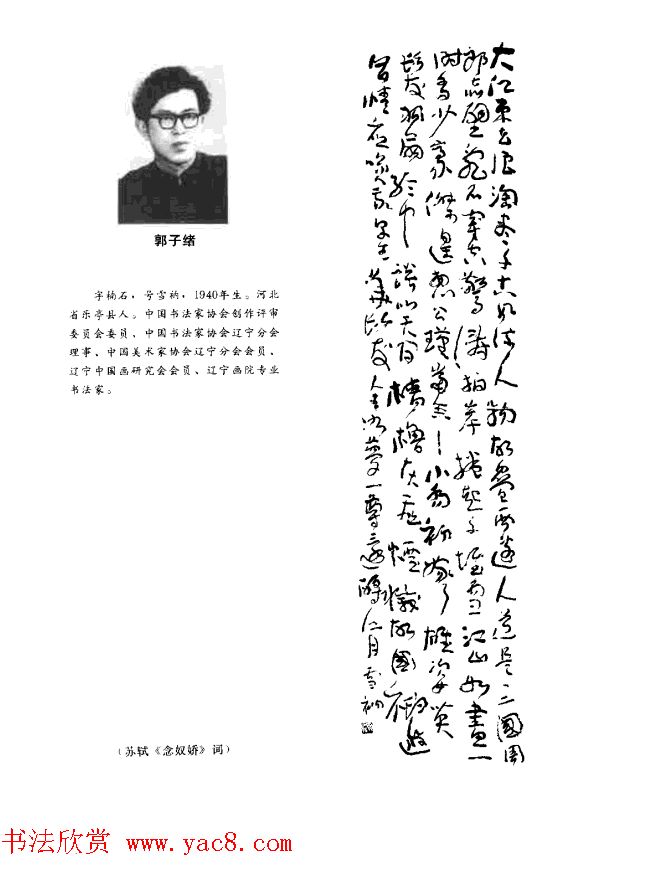 郭子绪
字楠石，号雪衲，1940年生。河北
省乐亭县人。中国书法家协会创作评审
委员会委员、中国书法家协会辽宁分会
理事、中国美术家协会辽宁分会会员、
辽宁中国画研究会会员、辽宁画院专业
书法家。
（苏轼《念奴娇》词）
大江東去浪淘盡千古風流人物故壘西邊人道是三國周
郎赤壁亂石穿空驚濤拍岸捲起千堆雪江山如畫一
時多少豪傑遙想公瑾當年小喬初嫁了雄姿英
發羽扇綸巾談笑間檣櫓灰飛煙滅故國神遊
多情應笑我早生華髮人生如夢一尊還酹江月雪衲
书法欣赏 www.yac8.com